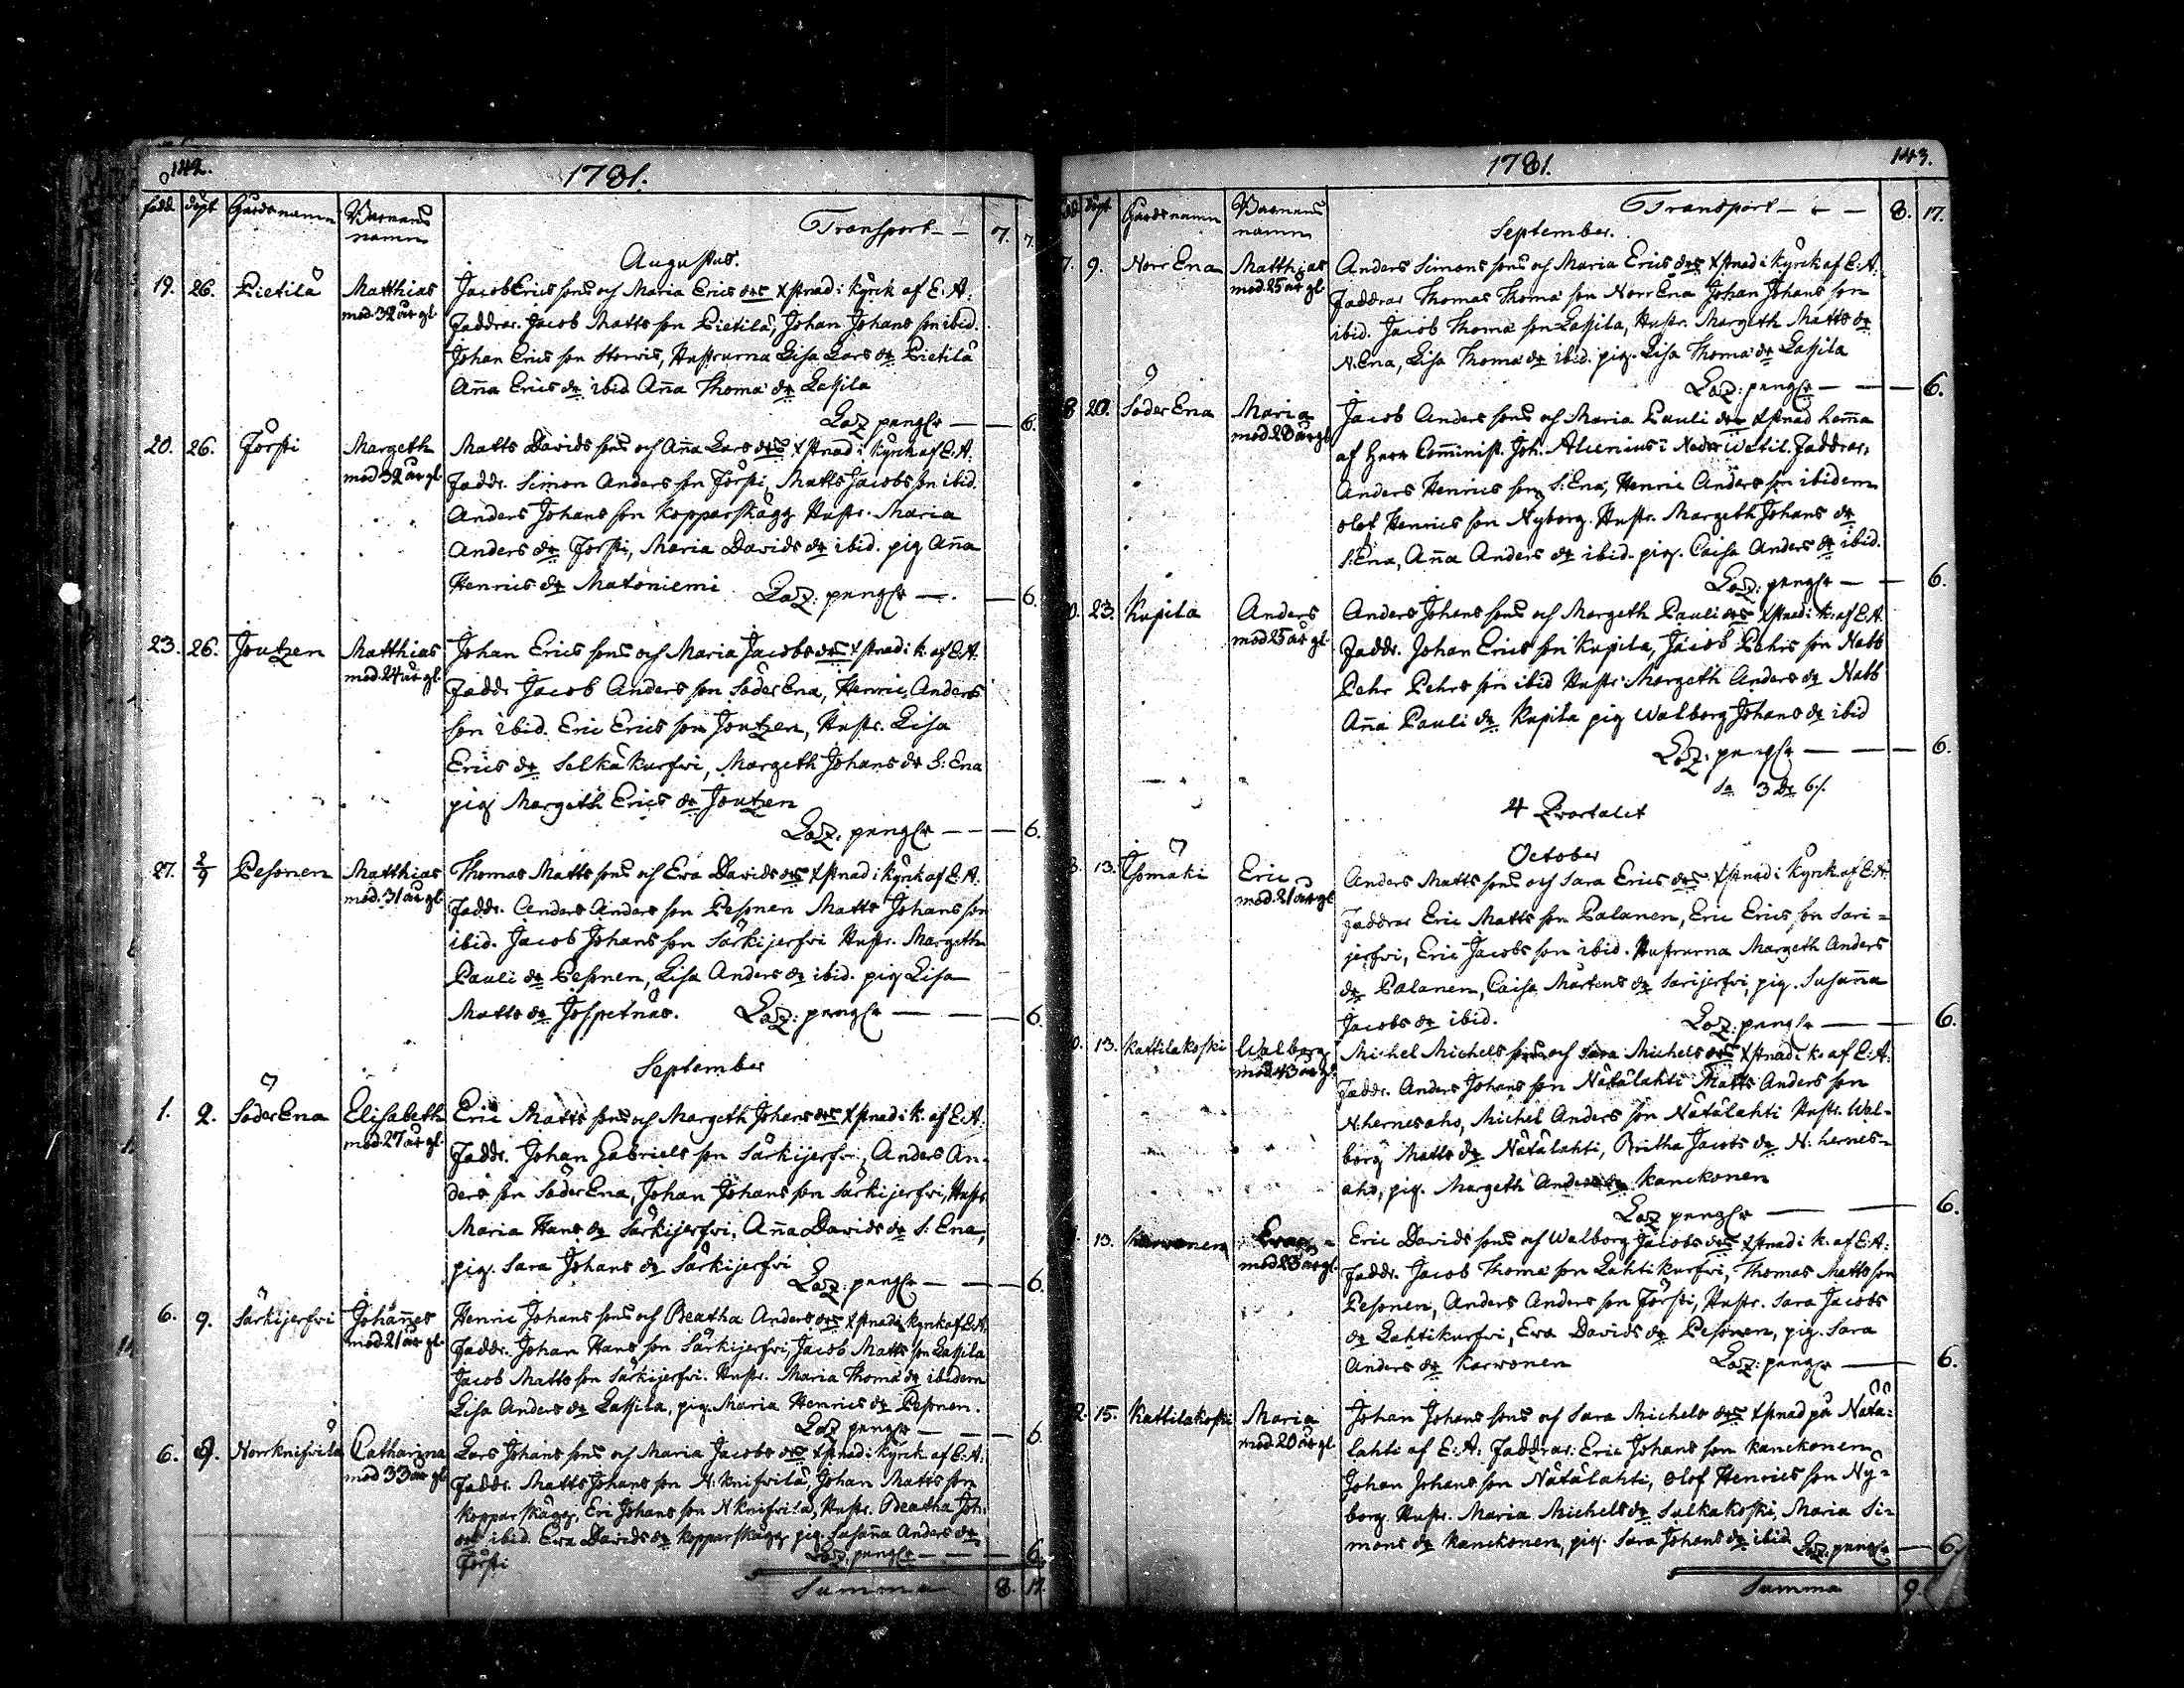 142.
1781.
född döpt Gårdsnamn Barnens namn Transport - - 7. 7.
Augustus.
19. 26. Pietilä Matthias Jacob Erics sons och Maria Erics drs Xstnad i kyrk af E: A:
mod. 32 år gl. Faddrar. Jacob Matts son Pietilä, Johan Johans son ibid.
Johan Erics son Storvis, Hustrurna Lisa Lars dr Pietilä
Aña Erics dr ibid Aña Thomæ dr Lassila
Laz pengr — — 6.
20. 26. Förssti Margeth Matts Davids sons och Aña Lars drs Xstnad i kyrk af E: A.
mod 32 år gl. Faddr. Simon Anders son Förssti, Matts Jacobs son ibid.
Anders Johans son Kopparskägg Hustr. Maria
Anders dr Förssti, Maria Davids dr ibid. pig Aña
Henrics dr Matoniemi Laz: pengr — — 6.
23. 26. Joutzen Matthias Johan Erics sons och Maria Jacobs drs Xstnad i k. af E: A.
mod. 24 år gl. Faddr Jacob Anders son Söder Ena, Henric Anders
son ibid. Eric Erics son Joutzen, Hustr. Lisa
Erics dr Selkäkurfwi, Margeth Johans dr S: Ena
pig Margeth Erics dr Joutzen
Laz: pengr — — 6.
27. 2/9 Pesonen Matthias Thomas Matts sons och Ewa Davids drs Xstnad i kyrk af E: A.
mod. 31 år gl. Faddr. Anders Anders son Pesonen Matts Johans son
ibid. Jacob Johans son Särkijerfwi Hustr. Margeth
Pauli dr Pesonen, Lisa Anders dr ibid. pig Lisa
Matts dr Jospetnäs. Laz: pengr — — 6.
September
1. 2. Söder Ena Elisabeth Eric Matts sons och Margeth Johans drs Xstnad i k. af E: A:
mod. 27 år gl. Faddr. Johan Gabriels son Särkijerfwi, Anders An-
ders son Söder Ena, Johan Johans son Särkijerfwi, Hustr.
Maria Hans dr Särkijerfwi, Aña Davids dr S: Ena,
pig. Sara Johans dr Särkijerfwi Laz: pengr — — 6.
6. 9. Särkijerfwi Johañes Henric Johans sons och Beatha Anders drs Xstnad i kyrk af E: A.
mod. 21 år gl. Faddr. Johan Hans son Särkijerfwi, Jacob Matts son Lassila
Jacob Matts son Särkijerfwi. Hustr. Maria Thomæ dr ibidem
Lisa Anders dr Lassila, pig. Maria Henrics dr Pesonen.
Laz pengr — — 6.
6. 9. Norrknifwilä Catharina Lars Johans sons och Maria Jacobs drs Xstnad i kyrk. af E: A:
mod 33 år gl. Faddr. Matts Johans son N: knifwilä, Johan Matts son
Kopparskägg, Eri Johans son N knifwilä, Hustr. Beatha Joh:
dr ibid. Ewa Davids dr Kopparskägg pig. Susaña Anders dr
Förssti Laz: pengr — — 6.
Summa 8. 17.
1781. 143.
född döpt Gårdsnamn Barnens namn Transport - - - 8. 17.
September.
7. 9. Norr Ena Matthias Anders Simons sons och Maria Erics drs Xstnad i kyrk af E: A.
mod. 25 år gl. Faddrar Thomas Thomæ son Norr Ena Johan Johans son
ibid. Jacob Thomæ son Lassila, Hustr. Margeth Matts dr
N. Ena, Lisa Thomæ dr ibid. pig. Lisa Thomæ dr Lassila
Laz: pengr — — 6.
8 20. Söder Ena Maria Jacob Anders sons och Maria Pauli drs Xstnad hem̃a
mod 28 år gl af Herr Com̃inist. Joh. Alcenius i Neder Wetil. Faddrar.
Anders Henrics son S: Ena, Henric Anders son ibidem
Olof Henrics son Nyborg. Hustr. Margeth Johans dr
S: Ena, Aña Anders dr ibid. pig. Caisa Anders dr ibid.
Laz: pengr — — 6.
0. 23. Kupila Anders Anders Johans sons och Margeth Pauli drs Xstnad i k. af E: A.
mod 25 år gl. Faddr. Johan Erics son Kupila, Jacob Pehrs son Nabb
Pehr Pehrs son ibid Hustr Margeth Anders dr Nabb
Aña Pauli dr Kupila pig Walborg Johans dr ibid
Laz: pengr — — 6.
Sa 3 dr 6/.
4 Qvartalet
October
3. 13. Isomäki Eric Anders Matts sons och Sara Erics drs Xstnad i kyrk. af E: A:
mod. 21 år gl Faddrar Eric Matts son Palanen, Eric Erics son Sari-
jerfwi, Eric Jacobs son ibid. Hustrurna Margeth Anders
dr Palanen, Caisa Mårtens dr Sarijerfwi, pig. Susaña
Jacobs dr ibid. Laz: pengr — — 6.
0. 13. Kattilakoski Walborg Michel Michels sons och Sara Michels drs Xstnad i k. af E: A:
mod. 43 år gl. Faddr. Anders Johans son Nätälahti Matts Anders son
N: hernesaho, Michel Anders son Nätälahti Hustr. Wal-
borg Matts dr Nätälahti, Britha Jacobs dr N: hernes-
aho, pig. Margeth Anders dr Kanckonen
Laz pengr — — 6.
13. Karwonen Eric Davids sons och Walborg Jacobs drs Xstnad i k. af E: A:
mod 23 år gl. Faddr. Jacob Thomæ son Lahtikurfwi, Thomas Matts son
Pesonen, Anders Anders son Förssti, Hustr. Sara Jacobs
dr Lahtikurfwi, Ewa Davids dr Pesonen, pig. Sara
Anders dr Karwonen Laz: pengr — 6.
2. 15. Kattilakoski Maria Johan Johans sons och Sara Michels drs Xstnad på Nätä-
mod. 20 år gl. lahti af E: A: Faddrar: Eric Johans son Kanckonen
Johan Johans son Nätälahti, Olof Henrics son Ny-
borg. Hustr. Maria Michels dr Salkakoski, Maria Si-
mons dr Kanckonen, pig. Sara Johans dr ibid Laz: pengr — 6.
Summa 9.